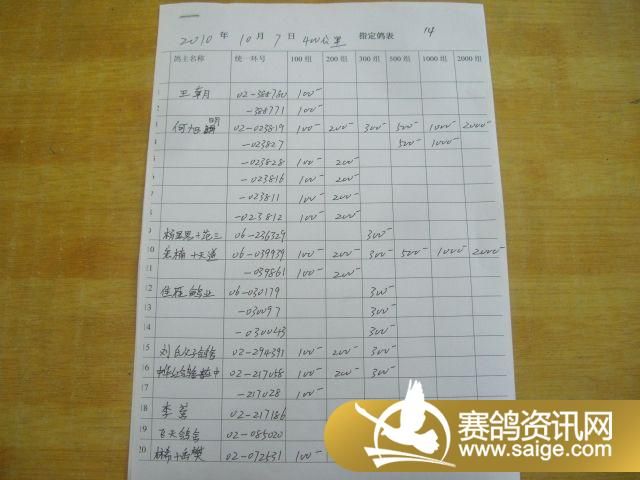 2010 年 10 月 7 日 400公里 指定鸽表 14
鸽主名称 统一环号 100组 200组 300组 500组 1000组 2000组
02-388780 100-
2 -388771 100-
3 02-023819 100- 200- 300- 500- 1000- 2000-
4 -023827 500- 1000-
5 -023828 100- 200-
6 -023816 100- 200-
7 -023811 100- 200-
8 -023812 100- 200-
9 06-236329 300-
10 06-039939 100- 200- 300- 500- 1000- 2000-
11 -039861 100- 200-
12 06-030179 300-
13 -030097 300-
14 -030043 300-
15 02-294391 100- 200- 300-
16 02-217058 100- 200- 300-
17 -217028 100-
18 02-217186
19 飞天鸽舍 02-085020
20 02-072531 100-
赛鸽资讯网
www.saige.com